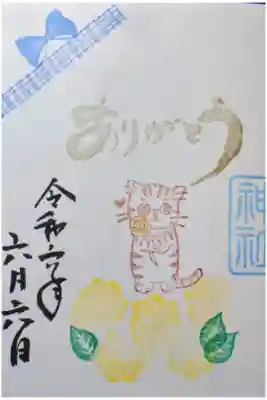 ありがとう
神社
令和六年
六月六日